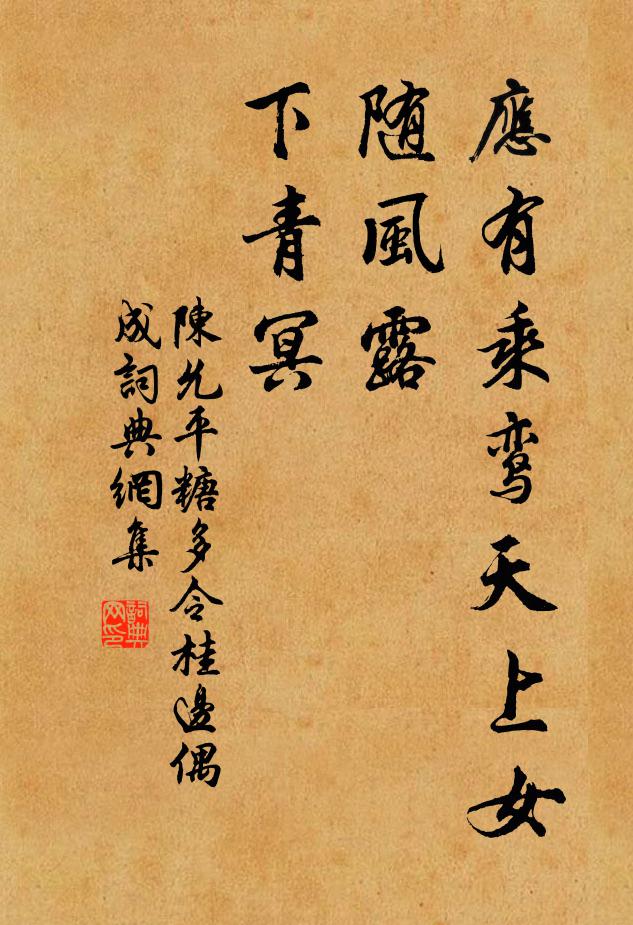 應有乘鸾天上女
随風露
下青冥
陳允平糖多令桂邊偶
成詞典網集
詞典
网印